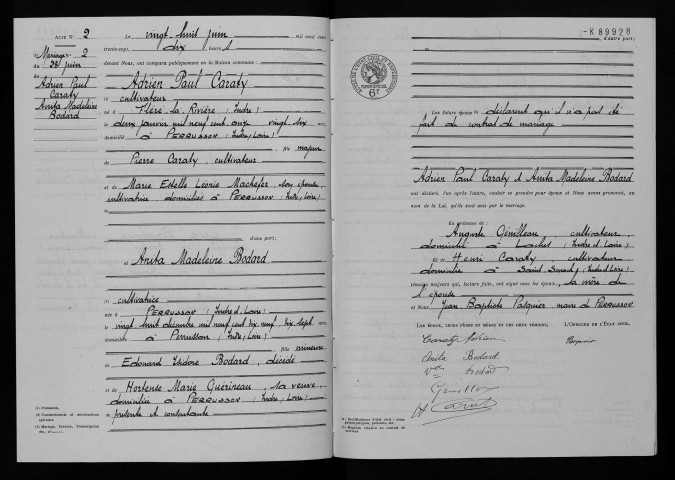 ACTE N° 2
Mariage N° 2
du 28 juin
Adrien Paul
Caraty
Anita Madeleine
Bodard
Le vingt huit juin mil neuf cent
trente-sept, dix heures
devant Nous, ont comparu publiquement en la Maison commune :
Adrien Paul Caraty
cultivateur
né à Fléré-la-Rivière (Indre)
le deux janvier mil neuf cent onze, vingt-six ans,
domicilié à PERRUSSON (Indre, Loire)
fils majeur
de Pierre Caraty, cultivateur
et de Marie Estelle Léonie Machefer, son épouse,
cultivatrice domiciliés à PERRUSSON (Indre, Loire)
d'une part;
et Anita Madeleine Bodard
cultivatrice
née à PERRUSSON (Indre et Loire)
le vingt huit décembre mil neuf cent dix neuf, dix sept ans,
domiciliée à Perrusson (Indre, Loire)
fille mineure
de Edouard Isidore Bodard, décédé
et de Hortense Marie Guérineau, sa veuve,
domiciliée à PERRUSSON (Indre, Loire)
présente et consentante
(1) Profession.
(2) Consentements et autorisations
spéciales.
(3) Mariage, Divorce, Transcription
-K 89928
d'autre part;
6F
Les futurs époux déclarent qu'il n'a pas été
fait de contrat de mariage
Adrien Paul Caraty et Anita Madeleine Bodard
ont déclaré, l'un après l'autre, vouloir se prendre pour époux et Nous avons prononcé, au
nom de la Loi, qu'ils sont unis par le mariage.
En présence de :
Auguste Génilleau, cultivateur,
domicilié à Loches (Indre et Loire)
et de Henri Caraty, cultivateur
domicilié à Saint (Indre et Loire)
témoins majeurs qui, lecture faite, ont signé avec les époux, la mère de
l'épouse
et Nous Jean Baptiste Pasquier maire de PERRUSSON
LES ÉPOUX, LEURS PÈRES ET MÈRES ET LES DEUX TÉMOINS, L'OFFICIER DE L'ÉTAT CIVIL,
Caraty Adrien Pasquier
Anita Bodard
Vve Bodard